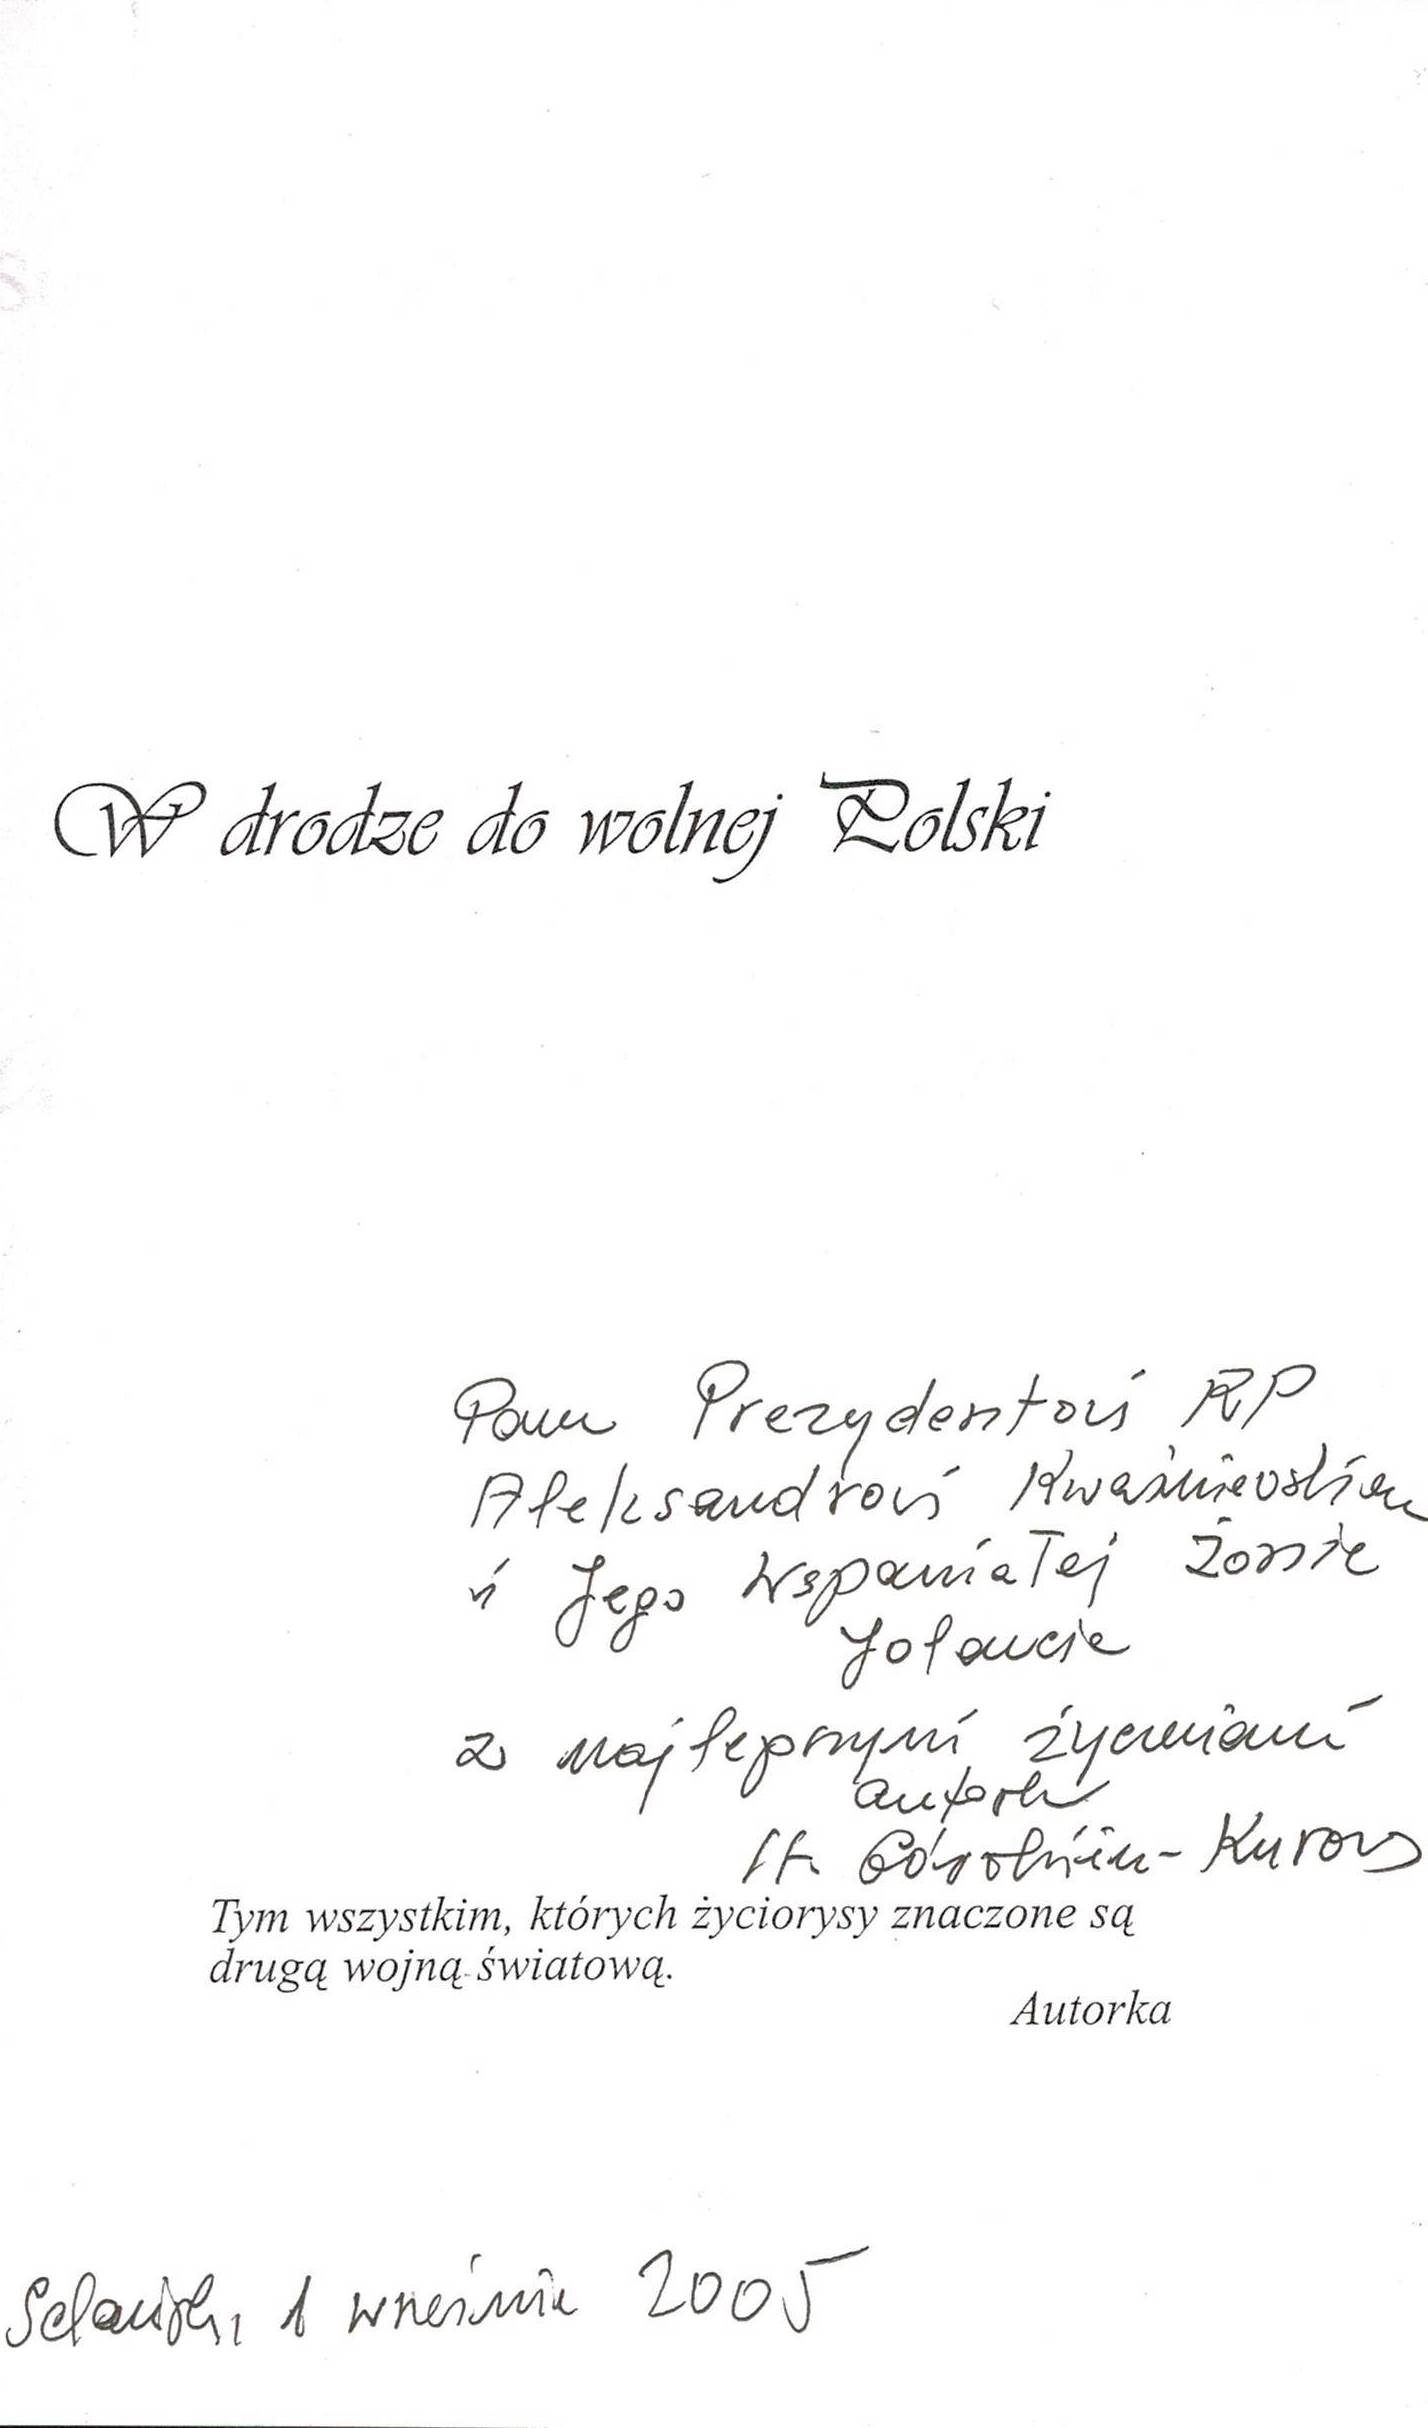 W drodze do wolnej Polski
Panu Prezydentowi RP
Aleksandrowi Kwaśniewskiemu
i Jego Wspaniałej Żonie
Jolancie
z najlepszymi życzeniami
autorka
Górnikiewicz-Kurowska
Tym wszystkim, których życiorysy znaczone są
drugą wojną światową.
Autorka
1 września 2005